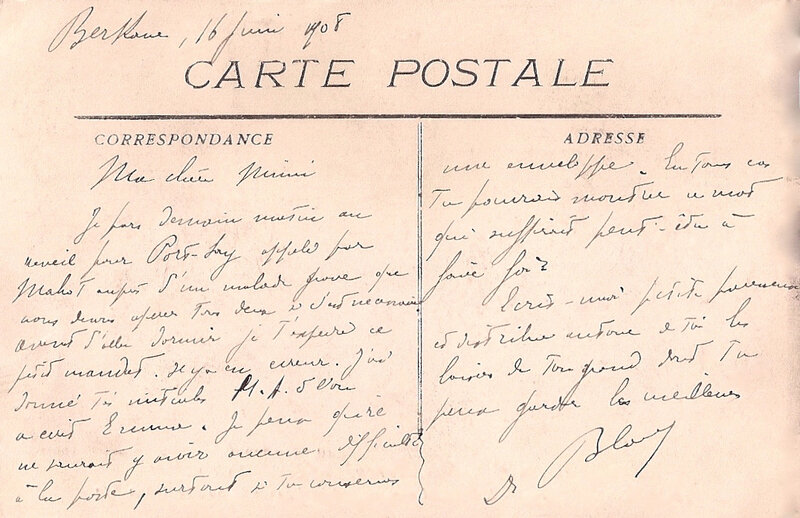 Berkane, 16 Juin 1908
CARTE POSTALE
CORRESPONDANCE
Ma chère Mimi
Je pars demain matin au
réveil pour Port-Say appelé par
Mahot auprès d'un malade grave que
nous devons opérer tous deux si c'est nécessaire
avant d'aller dormir je t'expédie ce
petit mandat. Il y a eu erreur. J'ai
donné tes initiales M. A. d'où
a écrit Emma. Je pense qu'il
ne saurait y avoir aucune difficulté
à la poste, surtout si tu conserves
ADRESSE
une enveloppe. En tous cas
tu pourrais montrer ce mot
qui suffirait peut-être à
faire foi?
Ecris-moi petite paresseuse
et distribue autour de toi les
baisers de ton grand dont tu
peux garder les meilleurs
Dr